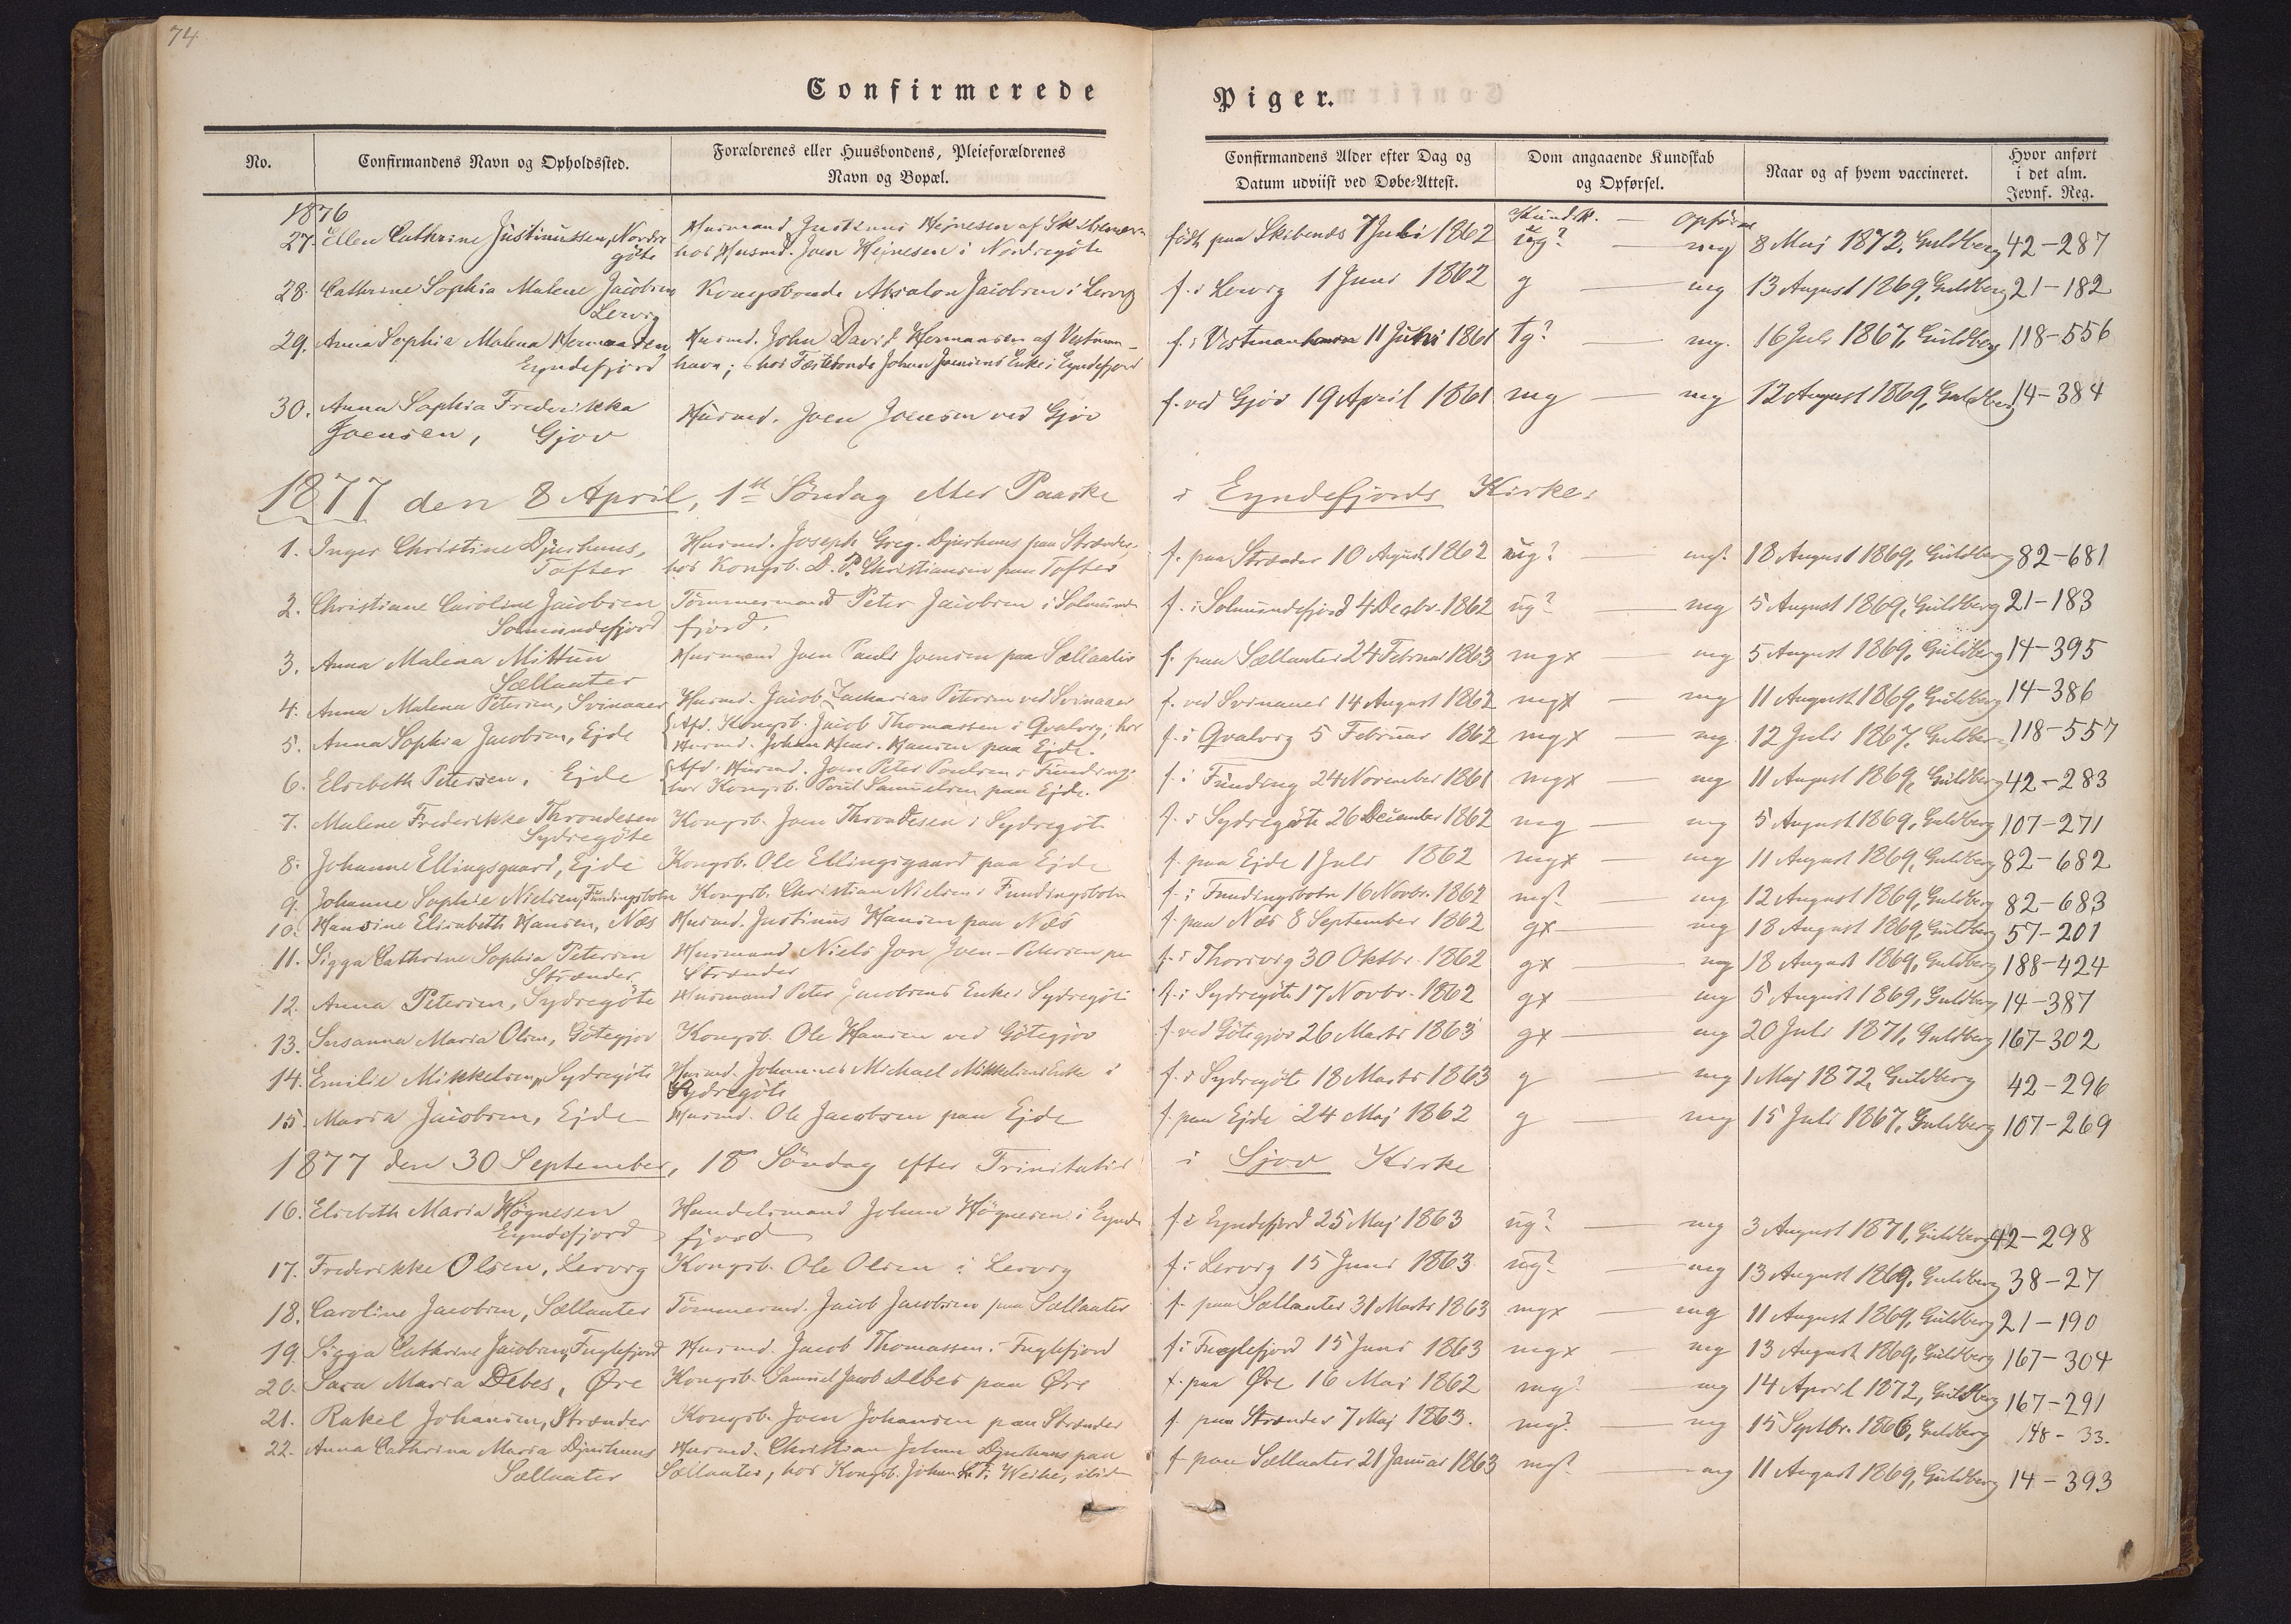 74
Confirmerede Piger.
No. Confirmandens Navn og Opholdssted. Forældrenes eller Huusbondens, Pleieforældrenes Navn og Bopæl. Confirmandens Alder efter Dag og Datum udviist ved Døbe-Attest. Dom angaaende Kundskab og Opførsel. Naar og af hvem vaccineret. Hvor anført i det alm. Jevnf. Reg.
1876 Kundsk. — Opførs
27. Ellen Cathrine Justinussen, Nordre Husmand Justinus Hejnesen af født paa Skibenæs 7 Juli 1862 ug? — mg 8 Maj 1872, Guldberg 42-287
göte hos Husmd. Joen Hejnesen i Nordregöte
28. Cathrine Sophia Malene Jacobsen Kongsbonde Absalon Jacobsen i Lervig f. i Lervig 1 Juni 1862 g — mg 13 August 1869, Guldberg 21-182
Lervig
29. Anna Sophia Malena Hermansen Husmd. John David Hermansen af Vestman- f. i Vestmanhavn 11 Juni 1861 tg? — mg. 16 Juli 1867, Guldberg 118-556
Eyndefjord havn; hos Fæstebonde Johan Joensens Enke i Eyndefjord
30. Anna Sophia Frederikka Husmd. Joen Joensen ved Gjov f. ved Gjov 19 April 1861 mg — mg 12 August 1869, Guldberg 14-384
Joensen, Gjov
1877 den 8 April, 1ste Söndag efter Paaske i Eyndefjords Kirke:
1. Inger Christine Djurhuus, Husmd. Joseph Greg. Djurhuus paa Strænder, f. paa Strænder 10 August 1862 ug? — mg? 18 August 1869, Guldberg 82-681
Tofter hos Kongsb. D. P. Christiansen paa Tofter
2. Christiane Caroline Jacobsen Tömmermand Peter Jacobsen i Solmunde f. i Solmundefjord 4 Decbr. 1862 ug? — mg 5 August 1869, Guldberg 21-183
Solmundefjord fjord.
3. Anna Malena Mittun Husmand Joen Pauli Joensen paa Sællaater f. paa Sællaater 24 Februar 1863 mgx — mg 5 August 1869, Guldberg 14-395
Sællaater
4. Anna Malena Petersen, Svinaaer Husmd. Jacob Zacharias Petersen ved Svinaaer f. ved Svinaaer 14 August 1862 mgx — mg 11 August 1869, Guldberg 14-386
5. Anna Sophia Jacobsen, Ejde Afd. Kongsb. Jacob Thomassen i Qvalvig; hos f. i Qvalvig 5 Februar 1862 mgx — mg 12 Juli 1867, Guldberg 118-557
Husmd. Johan Henr. Hansen paa Ejde.
6. Elsebeth Petersen, Ejde Afd. Husmd. Joen Peter Poulsen i Funding; f. i Funding 24 November 1861 mgx — mg 11 August 1869, Guldberg 42-283
hos Kongsb. Poul Samuelsen paa Ejde.
7. Malene Frederikke Throndesen Kongsb. Joen Throndesen i Sydregöte f. i Sydregöte 26 December 1862 mg — mg 5 August 1869, Guldberg 107-271
Sydregöte
8. Johanne Ellingsgaard, Ejde Kongsb. Ole Ellingsgaard paa Ejde f. paa Ejde 1 Juli 1862 mgx — mg 11 August 1869, Guldberg 82-682
9. Johanne Sophie Nielsen, Fundingsbotn Kongsb. Christian Nielsen i Fundingsbotn f. i Fundingsbotn 16 Novbr. 1862 mg? — mg 12 August 1869, Guldberg 82-683
10. Hansine Elisabeth Hansen, Næs Husmd. Justinus Hansen paa Næs f. paa Næs 8 September 1862 gx — mg 18 August 1869, Guldberg 57-201
11. Sigga Cathrine Sophia Petersen Husmand Niels Jon Joen-Petersen paa f. i Thorsvig 30 Oktbr. 1862 gx — mg 18 August 1869, Guldberg 188-424
Strænder Strænder
12. Anna Petersen, Sydregöte Husmand Peter Jacobsens Enke i Sydregöte f. i Sydregöte 17 Novbr. 1862 gx — mg 5 August 1869, Guldberg 14-387
13. Susanna Maria Olsen, Götegjov Kongsb. Ole Hansen ved Götegjov f. ved Götegjov 26 Marts 1863 gx — mg 20 Juli 1871, Guldberg 167-302
14. Emilie Mikkelsen, Sydregöte Husmd. Johannes Michael Mikkelsens Enke i f. i Sydregöte 18 Marts 1863 g — mg 1 Maj 1872, Guldberg 42-296
Sydregöte
15. Maria Jacobsen, Ejde Husmd. Ole Jacobsen paa Ejde f. paa Ejde 24 Maj 1862 g — mg 15 Juli 1867, Guldberg 107-269
1877 den 30 September, 18 Söndag efter Trinitatis i Gjov Kirke
16. Elsebeth Maria Högnesen Handelsmand Johan Högnesen i Eynde f. i Eyndefjord 25 Maj 1863 ug? — mg 3 August 1871, Guldberg 42-298
Eyndefjord fjord
17. Frederikke Olsen, Lervig Kongsb. Ole Olsen i Lervig f. i Lervig 15 Juni 1863 ug? — mg 13 August 1869, Guldberg 38-27
18. Caroline Jacobsen, Sællaater Tömmermd. Jacob Jacobsen paa Sællaater f. paa Sællaater 31 Marts 1863 mgx — mg 11 August 1869, Guldberg 21-190
19. Sigga Cathrine Jacobsen, Fuglefjord Husmd. Jacob Thomassen i Fuglefjord f. i Fuglefjord 15 Juni 1863 mgx — mg 13 August 1869, Guldberg 167-304
20. Sara Maria Debes, Øre Kongsb. Samuel Jacob Debes paa Øre f. paa Øre 16 Mai 1862 mg? — mg 14 April 1872, Guldberg 167-291
21. Rakel Johansen, Strænder Kongsb. Joen Johansen paa Strænder f. paa Strænder 7 Maj 1863. mg? — mg 15 Septbr. 1866, Guldberg 148-33.
22. Anna Cathrina Maria Djurhuus Husmd. Christian Johan Djurhuus paa f. paa Sællaater 21 Januar 1863 mg? — mg 11 August 1869, Guldberg 14-393
Sællaater Sællaater, hos Kongsb. Johan Weihe,